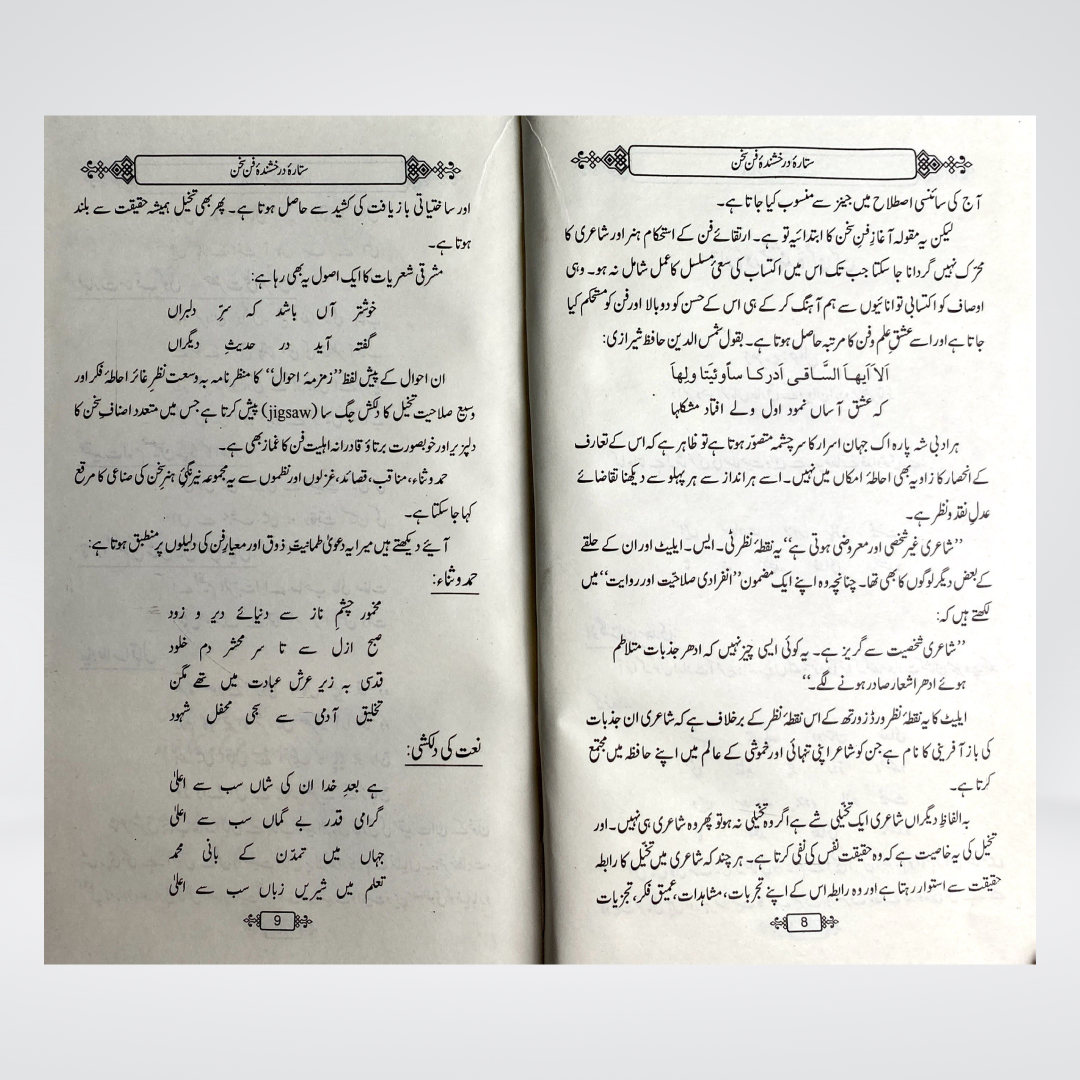 ستارۂ درخشندۂ فن سخن
آج کی سائنسی اصطلاح میں جینز سے منسوب کیا جاتا ہے۔
لیکن یہ مقولہ آغازِ فنِ سخن کا ابتدائیہ تو ہے۔ ارتقائے فن کے استحکام ہنر اور شاعری کا
محرّک نہیں گردانا جا سکتا جب تک اس میں اکتساب کی سعیٔ مسلسل کا عمل شامل نہ ہو۔ وہی
اوصاف کو اکتسابی توانائیوں سے ہم آہنگ کر کے ہی اس کے حسن کو دوبالا اور فن کو مستحکم کیا
جاتا ہے اور اسے عشقِ علم و فن کا مرتبہ حاصل ہوتا ہے۔ بقول شمس الدین حافظ شیرازی:
اَلاَ اَیھاَ السَّاقی اَدرکا ساًوئیَتا ولھاَ
کہ عشق آساں نمود اول ولے افتاد مشکلہا
ہر ادبی شہ پارہ اک جہان اسرار کا سرچشمہ متصوّر ہوتا ہے تو ظاہر ہے کہ اس کے تعارف
کے انحصار کا زاویہ بھی احاطۂ امکاں میں نہیں۔ اسے ہر انداز سے ہر پہلو سے دیکھنا تقاضائے
عدلِ نقد و نظر ہے۔
’’شاعری غیر شخصی اور معروضی ہوتی ہے‘‘ یہ نقطۂ نظر ٹی۔ ایس۔ ایلیٹ اور ان کے حلقے
کے بعض دیگر لوگوں کا بھی تھا۔ چنانچہ وہ اپنے ایک مضمون ’’انفرادی صلاحیّت اور روایت‘‘ میں
لکھتے ہیں کہ:
’’شاعری شخصیت سے گریز ہے۔ یہ کوئی ایسی چیز نہیں کہ ادھر جذبات متلاطم
ہوئے ادھر اشعار صادر ہونے لگے۔‘‘
ایلیٹ کا یہ نقطۂ نظر ورڈزورتھ کے اس نقطۂ نظر کے برخلاف ہے کہ شاعری ان جذبات
کی باز آفرینی کا نام ہے جن کو شاعر اپنی تنہائی اور خموشی کے عالم میں اپنے حافظہ میں مجتمع
کرتا ہے۔
بہ الفاظِ دیگراں شاعری ایک تخیّلی شے ہے اگر وہ تخیّلی نہ ہو تو پھر وہ شاعری ہی نہیں۔ اور
تخیل کی یہ خاصیت ہے کہ وہ حقیقت نفس کی نفی کرتا ہے۔ ہر چند کہ شاعری میں تخیّل کا رابطہ
حقیقت سے استوار رہتا ہے اور وہ رابطہ اس کے اپنے تجربات، مشاہدات، عمیق فکر، تجزیات
8
ستارۂ درخشندۂ فن سخن
اور ساختیاتی بازیافت کی کشید سے حاصل ہوتا ہے۔ پھر بھی تخیل ہمیشہ حقیقت سے بلند
ہوتا ہے۔
مشرقی شعریات کا ایک اصول یہ بھی رہا ہے:
خوشتر آں باشد کہ سرِّ دلبراں
گفتہ آید در حدیثِ دیگراں
ان احوال کے پیش لفظ ’’زمزمۂ احوال‘‘ کا منظرنامہ بہ وسعت نظرِ غائر احاطۂ فکر اور
وسیع صلاحیت تخیل کا دلکش جگ سا (jigsaw) پیش کرتا ہے جس میں متعدد اصنافِ سخن کا
دلپزیر اور خوبصورت برتاؤ قادرانہ اہلیت فن کا غماز بھی ہے۔
حمد و ثناء، مناقب، قصائد، غزلوں اور نظموں سے یہ مجموعہ نیرنگیٔ ہنرِ سخن کی صناعی کا مرقع
کہا جا سکتا ہے۔
آیئے دیکھتے ہیں میرا یہ دعویٰ طمانیتِ ذوق اور معیارِ فن کی دلیلوں پر منطبق ہوتا ہے:
حمد و ثناء:
مخمور چشمِ ناز سے دنیائے دیر و زود
صبح ازل سے تا سر محشر دم خلود
قدسی بہ زیر عرش عبادت میں تھے مگن
تخلیق آدمی سے سجی محفل شہود
نعت کی دلکشی:
ہے بعدِ خدا ان کی شاں سب سے اعلیٰ
گرامی قدر بے گماں سب سے اعلیٰ
جہاں میں تمدّن کے بانی محمد
تعلم میں شیریں زباں سب سے اعلیٰ
9